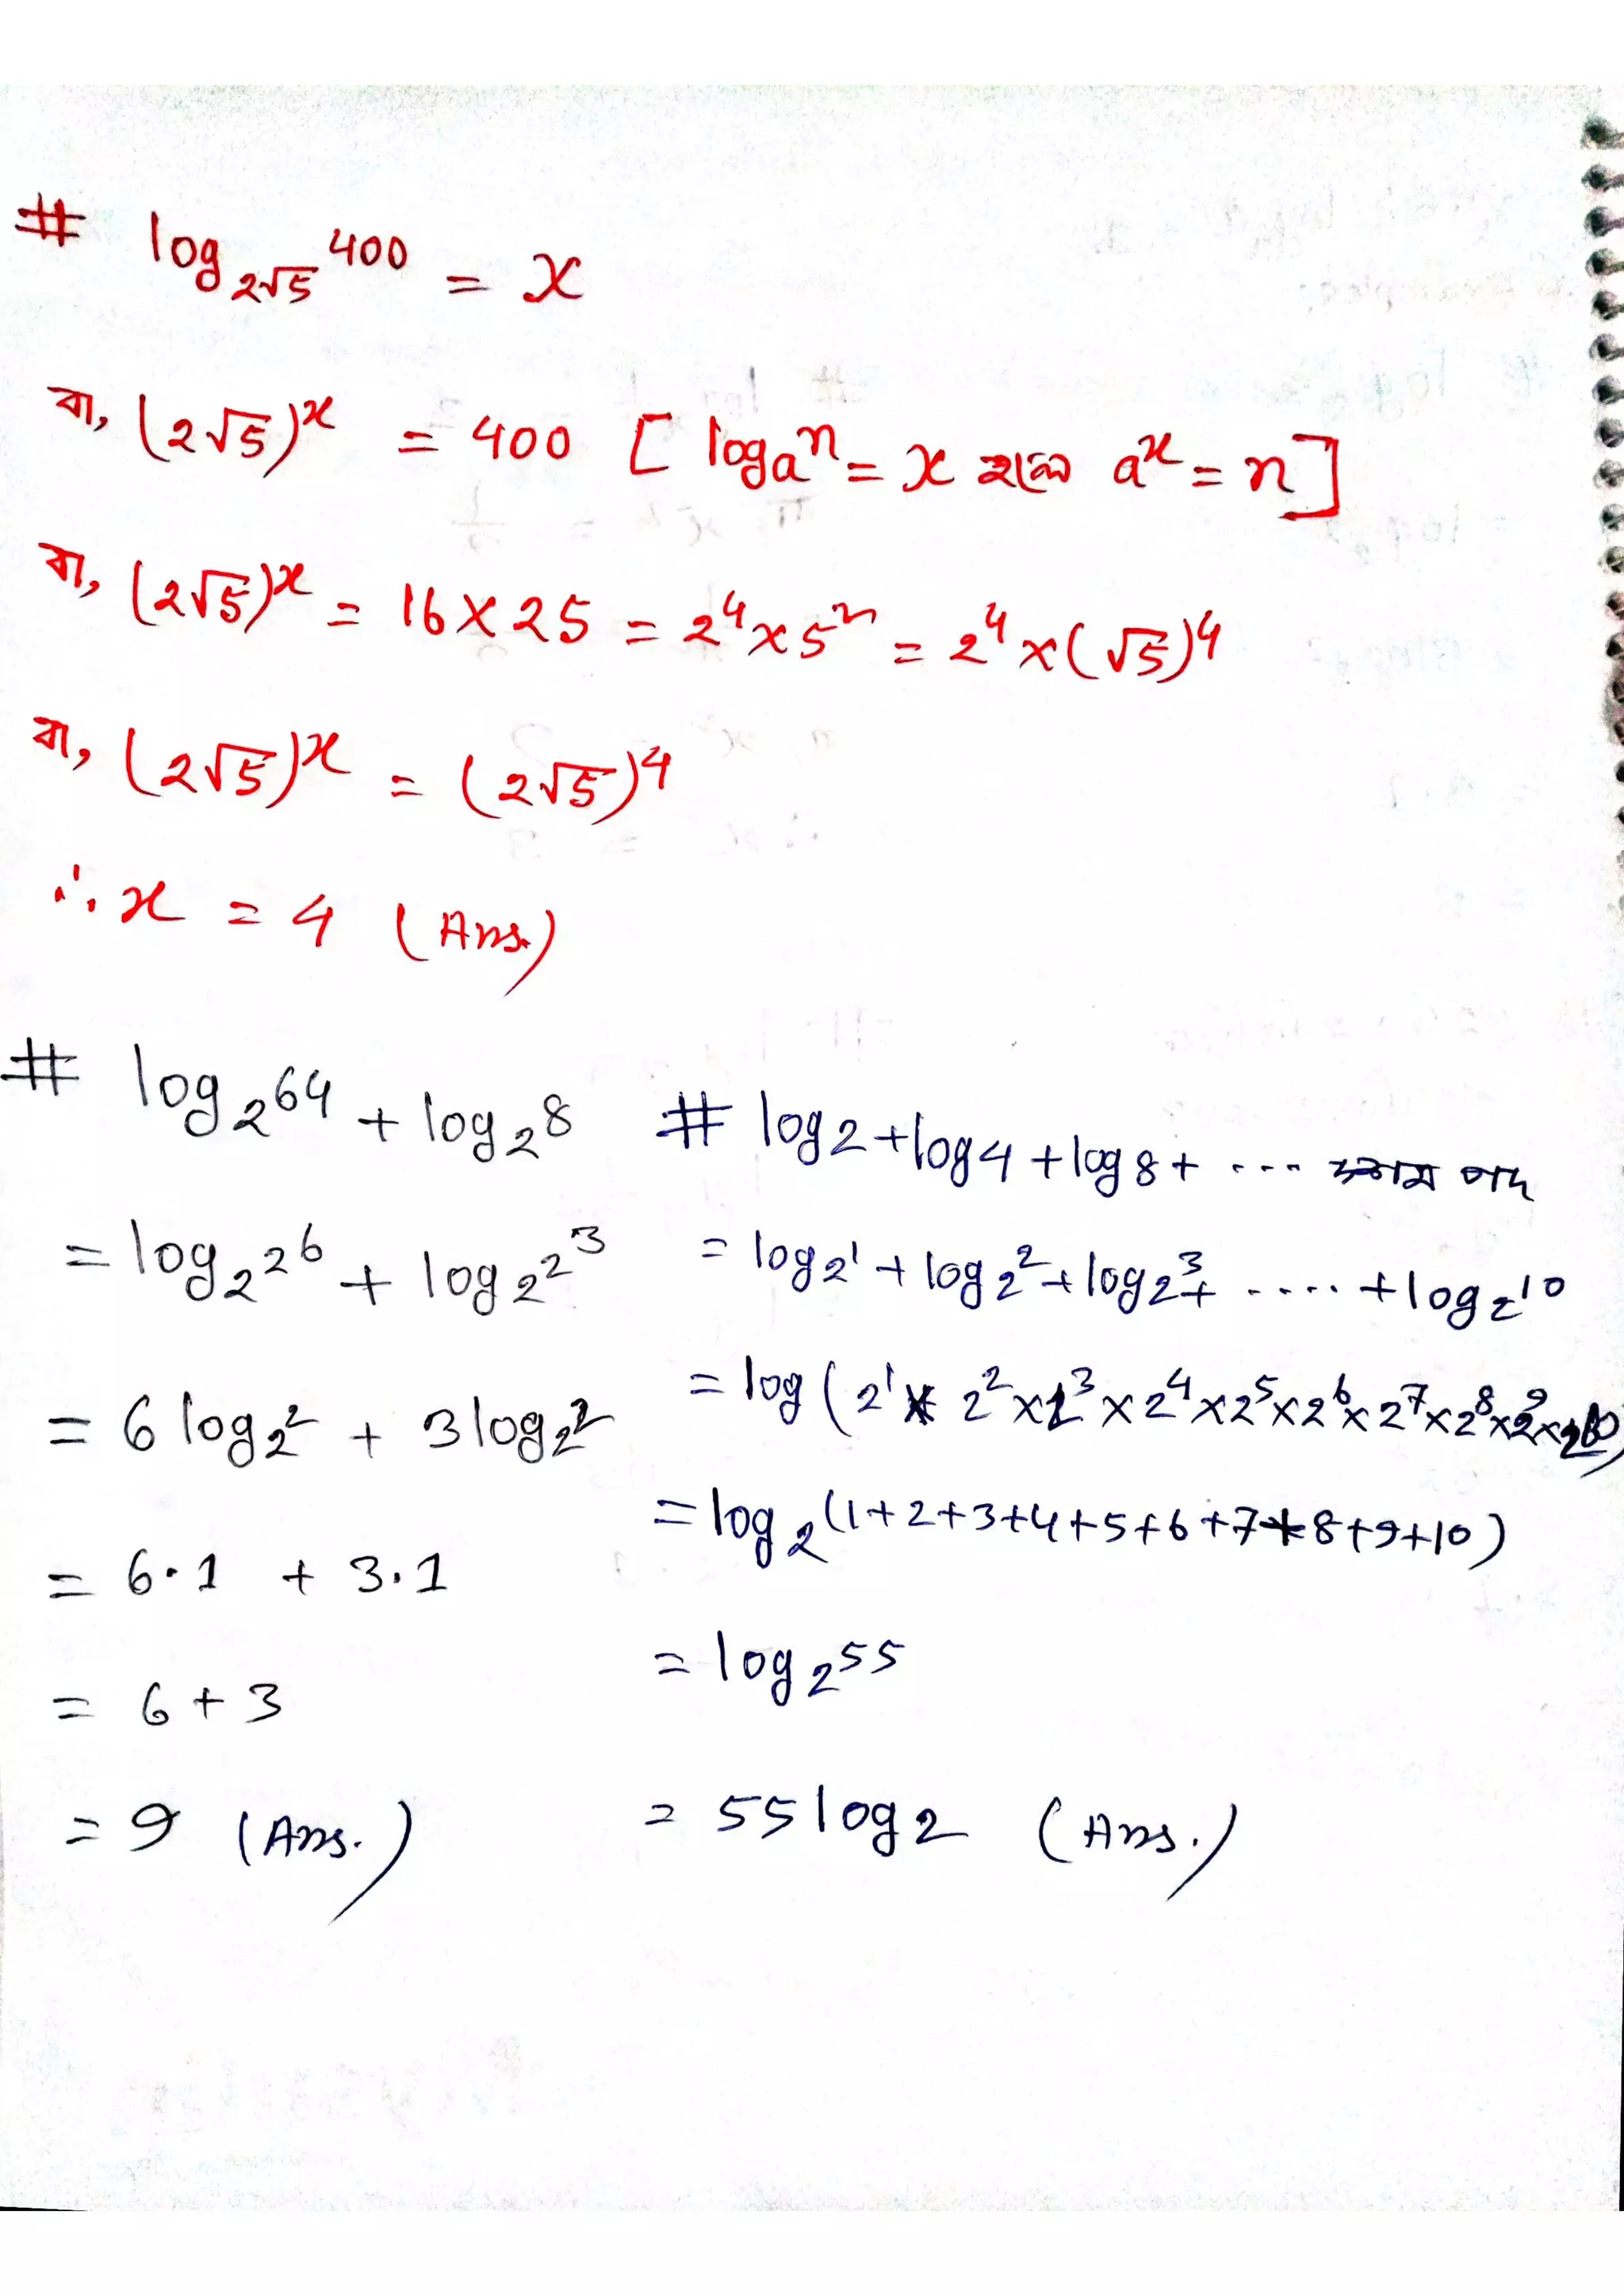 # log₂√₅ 400 = x
বা, (2√5)ˣ = 400 [logₐn = x হলে aˣ = n]
বা, (2√5)ˣ = 16 × 25 = 2⁴ × 5² = 2⁴ × (√5)⁴
বা, (2√5)ˣ = (2√5)⁴
∴ x = 4 (Ans.)
# log₂64 + log₂8
= log₂2⁶ + log₂2³
= 6 log₂2 + 3 log₂2
= 6·1 + 3·1
= 6 + 3
= 9 (Ans.)
# log2 + log4 + log8 + ... পদ
= log2¹ + log2² + log2³ + .... + log2¹⁰
= log (2¹ × 2² × 2³ × 2⁴ × 2⁵ × 2⁶ × 2⁷ × 2⁸ × 2⁹ × 2¹⁰)
= log 2⁽¹⁺²⁺³⁺⁴⁺⁵⁺⁶⁺⁷⁺⁸⁺⁹⁺¹⁰⁾
= log 2⁵⁵
= 55 log 2 (Ans.)